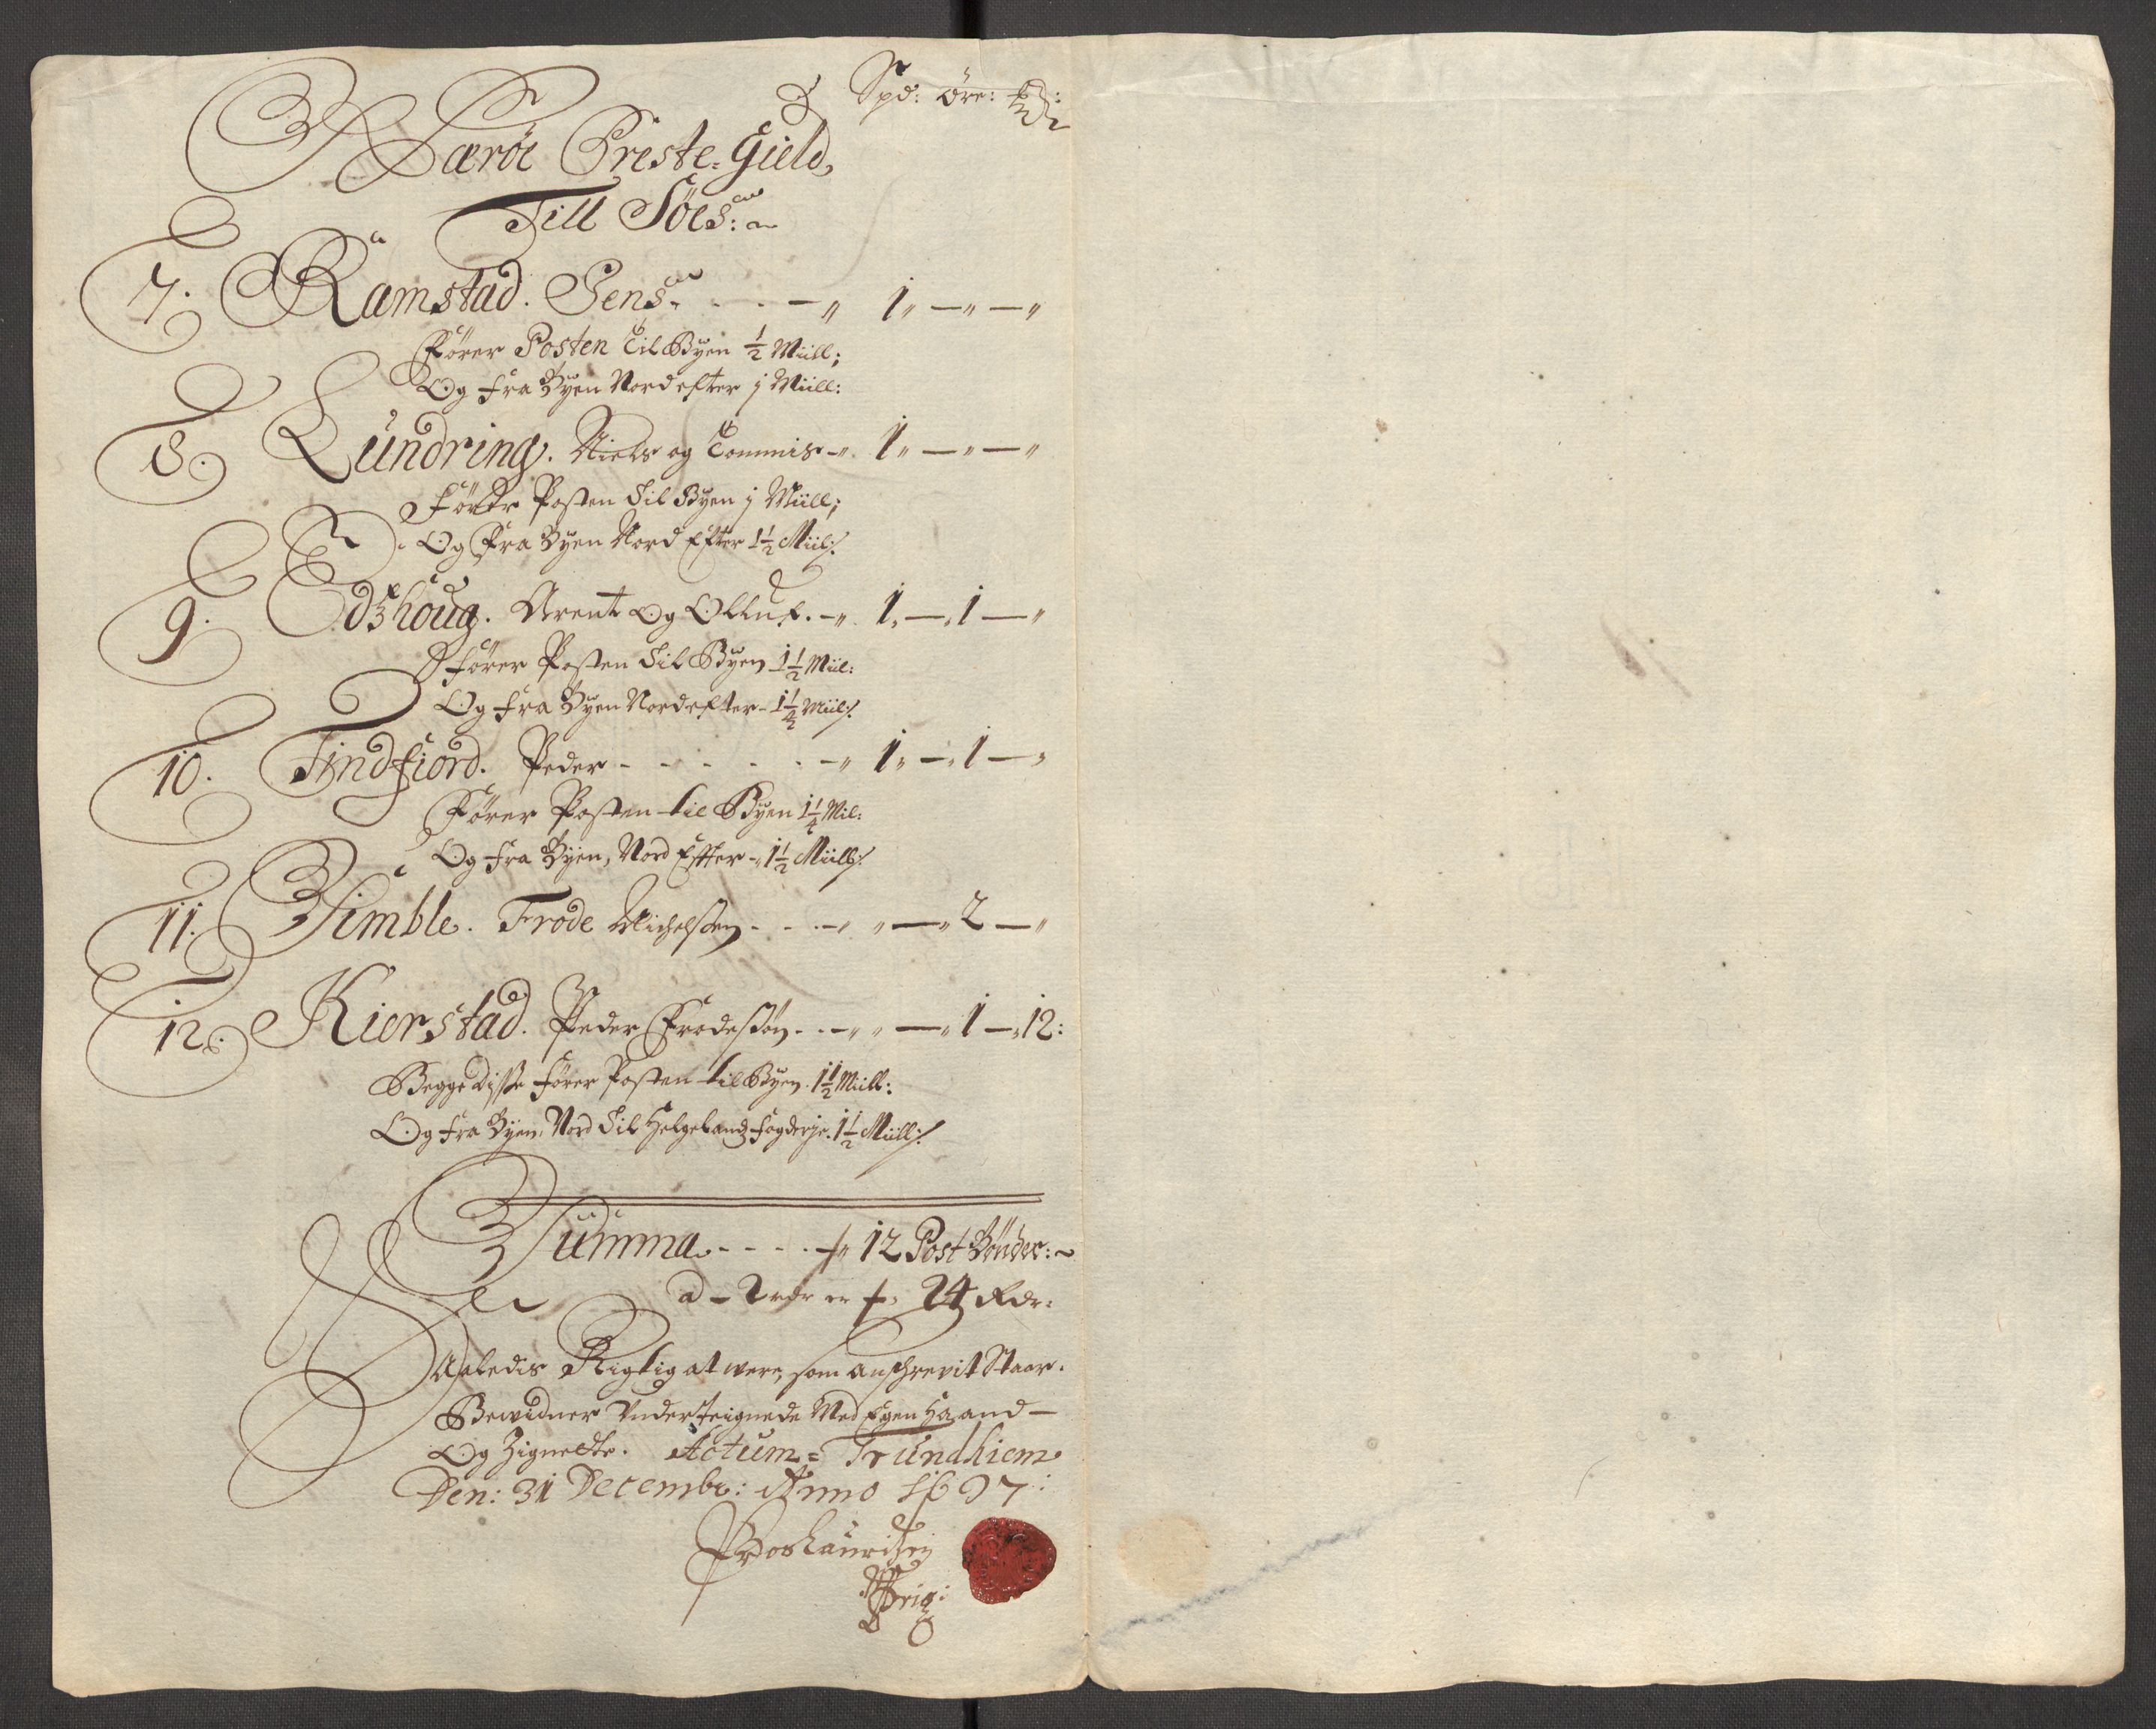 Spd: Öre:
Nærøe Preste-Gield,
Till Söes:
7. Ramstad. Jens. - - - - „ 1„ —„ —„
Förer Posten til Byen ½ Miill;
Og fra Byen Nordefter j Miill:
8. Lundring. Niels og Tommis -„ 1„ —„ —„
Förer Posten til Byen j Miill;
Og Fra Byen Nord Efter 1½ Miil:/.
9. Edzhoug. Arent og Olluf. -„ 1„ —„ 1 —„
förer Posten til Byen 1½ Miil:
Og fra Byen Nordefter - Miil:/.
10. Findfiord. Peder - - - - - -„ 1„ —„ 1 —„
Förer Posten til Byen 1¼ Mil:
Og fra Byen, Nord Effter -„ 1½ Miill:/.
11. Simble. Frode Michelsen - - -„ „ —„ 2 —„
12. Kierstad. Peder Frodesøn - - -„ „ —„ 1 —„ 12:
Begge disse förer Posten til Byen. 1½ Miill:
Og fra Byen, Nord til Helgelandz fogderje. 1½ Miill:/.
Summa. - - - - 12 Post Bönder: ~
a - 2 rdr er 24 Rdr:
Saaledis Rigtig at were, som anschrevit Staar.
Bewidner Underteignede Med Egen Haand —
Og Zignette. Actum = Trundhiem
Den: 31 Decembr: Anno 1697:
Lauritzen